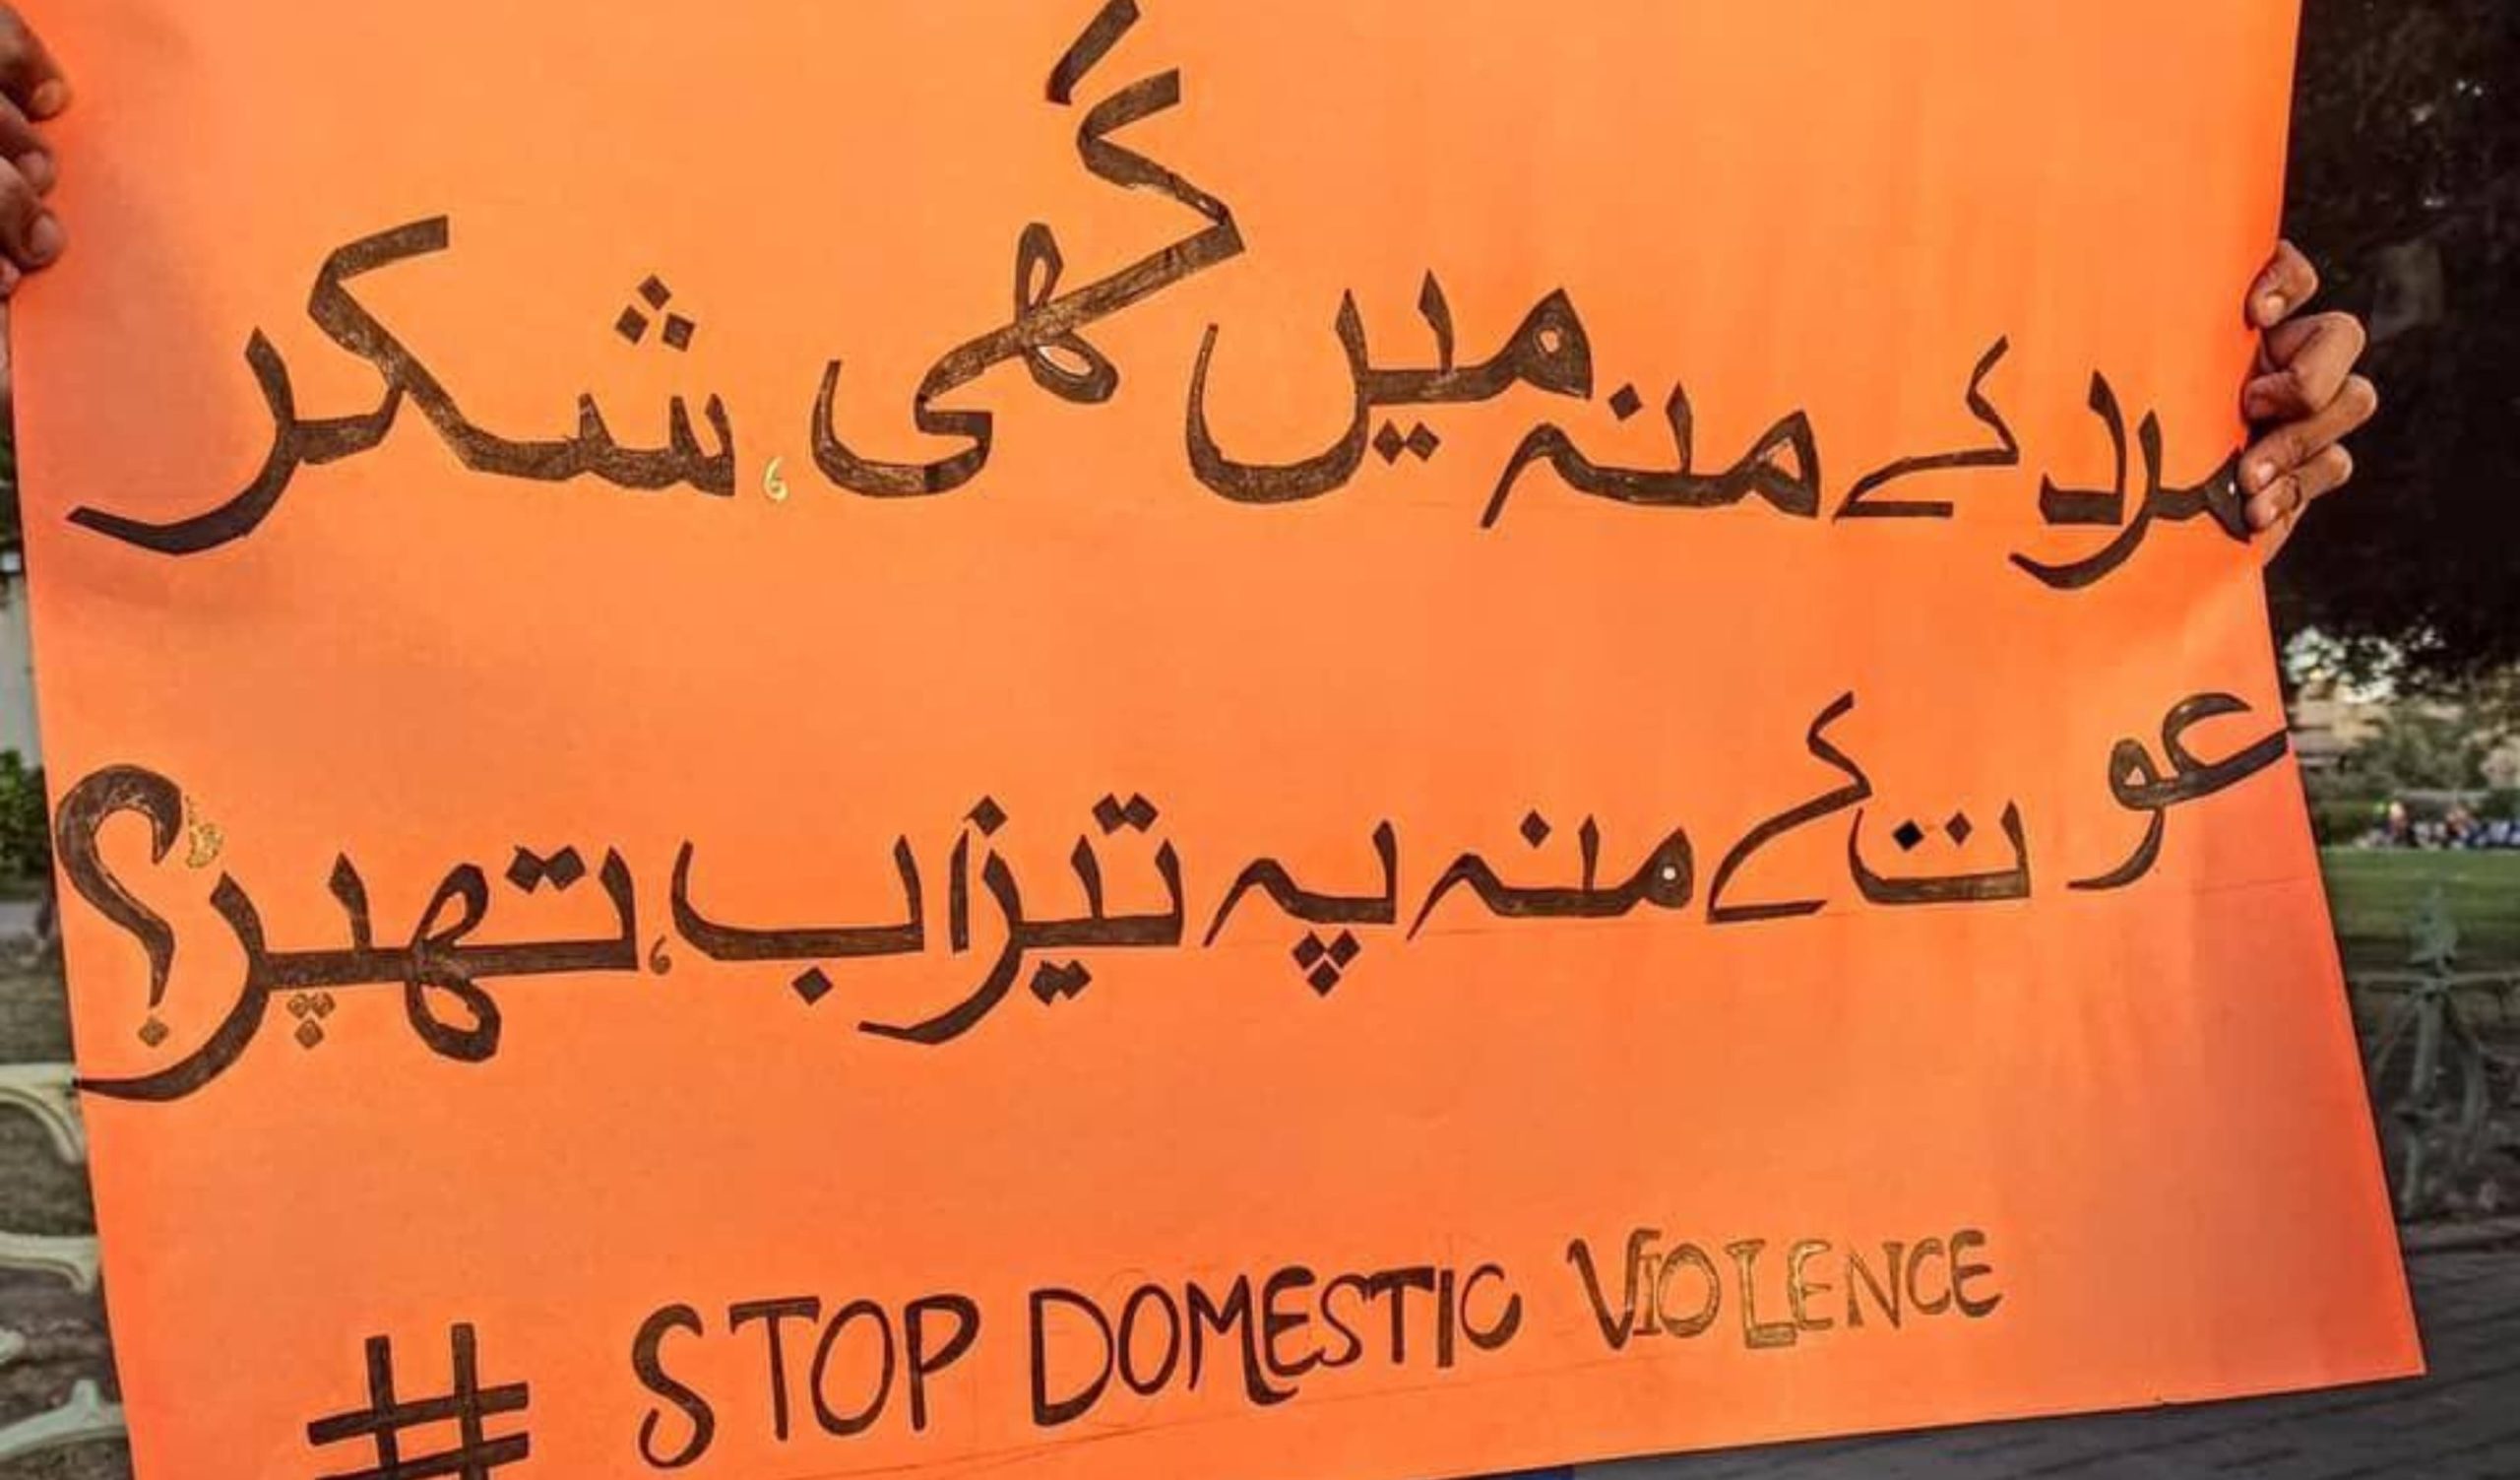 مرد کے منہ میں گھی، شکر
عوت کے منہ پہ تیزاب، تھپڑ؟
# STOP DOMESTIC VIOLENCE